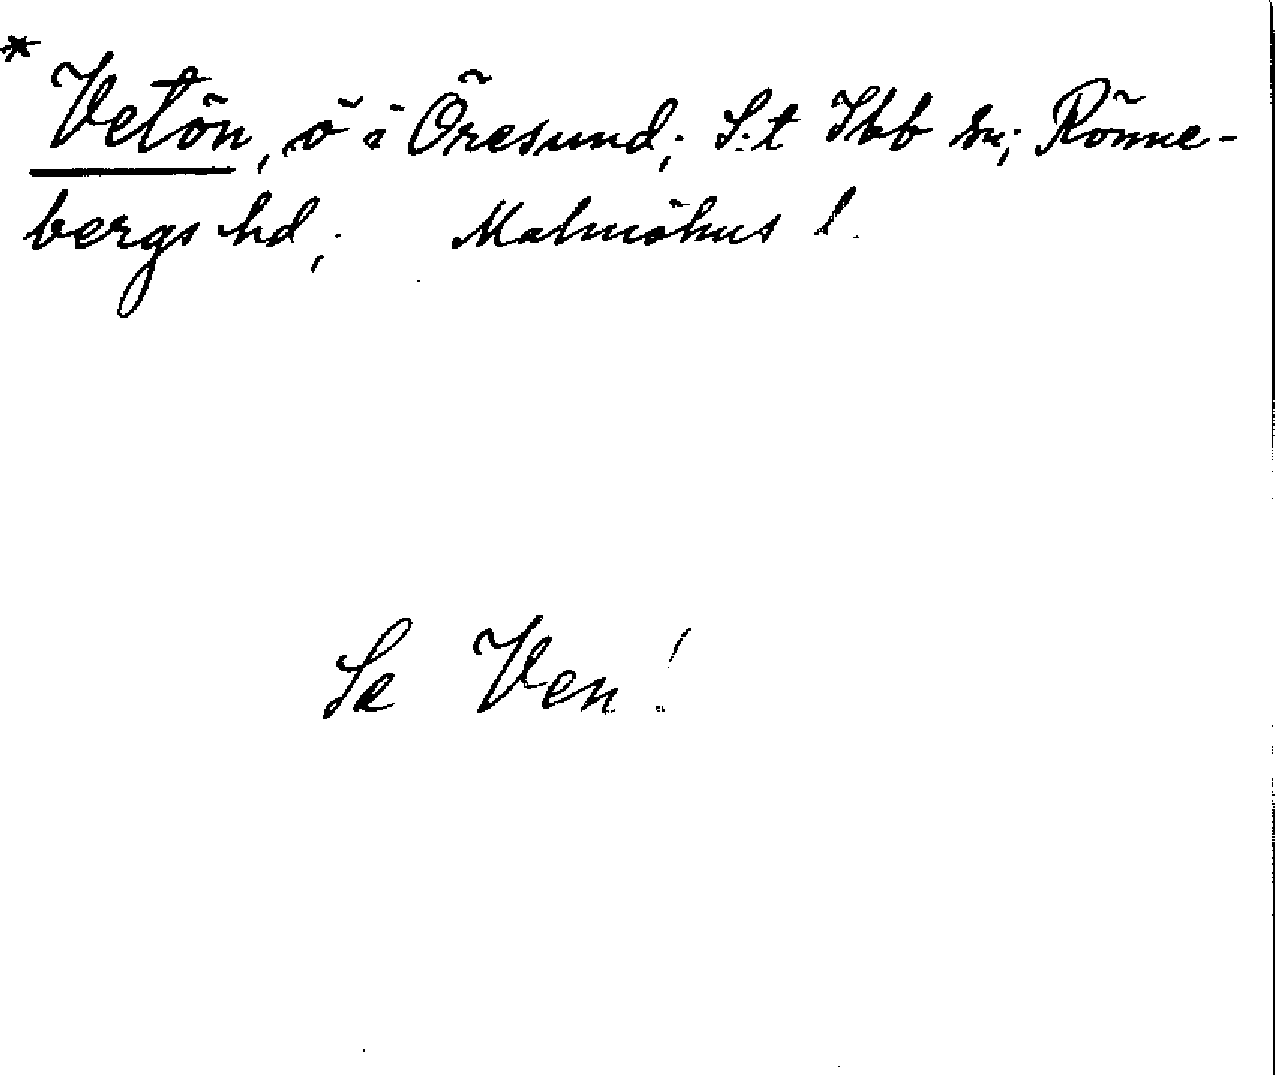 * Vetön, ö i Öresund; S:t Ibb sn; Rönne-
bergs hd; Malmöhus l.
Se Ven!